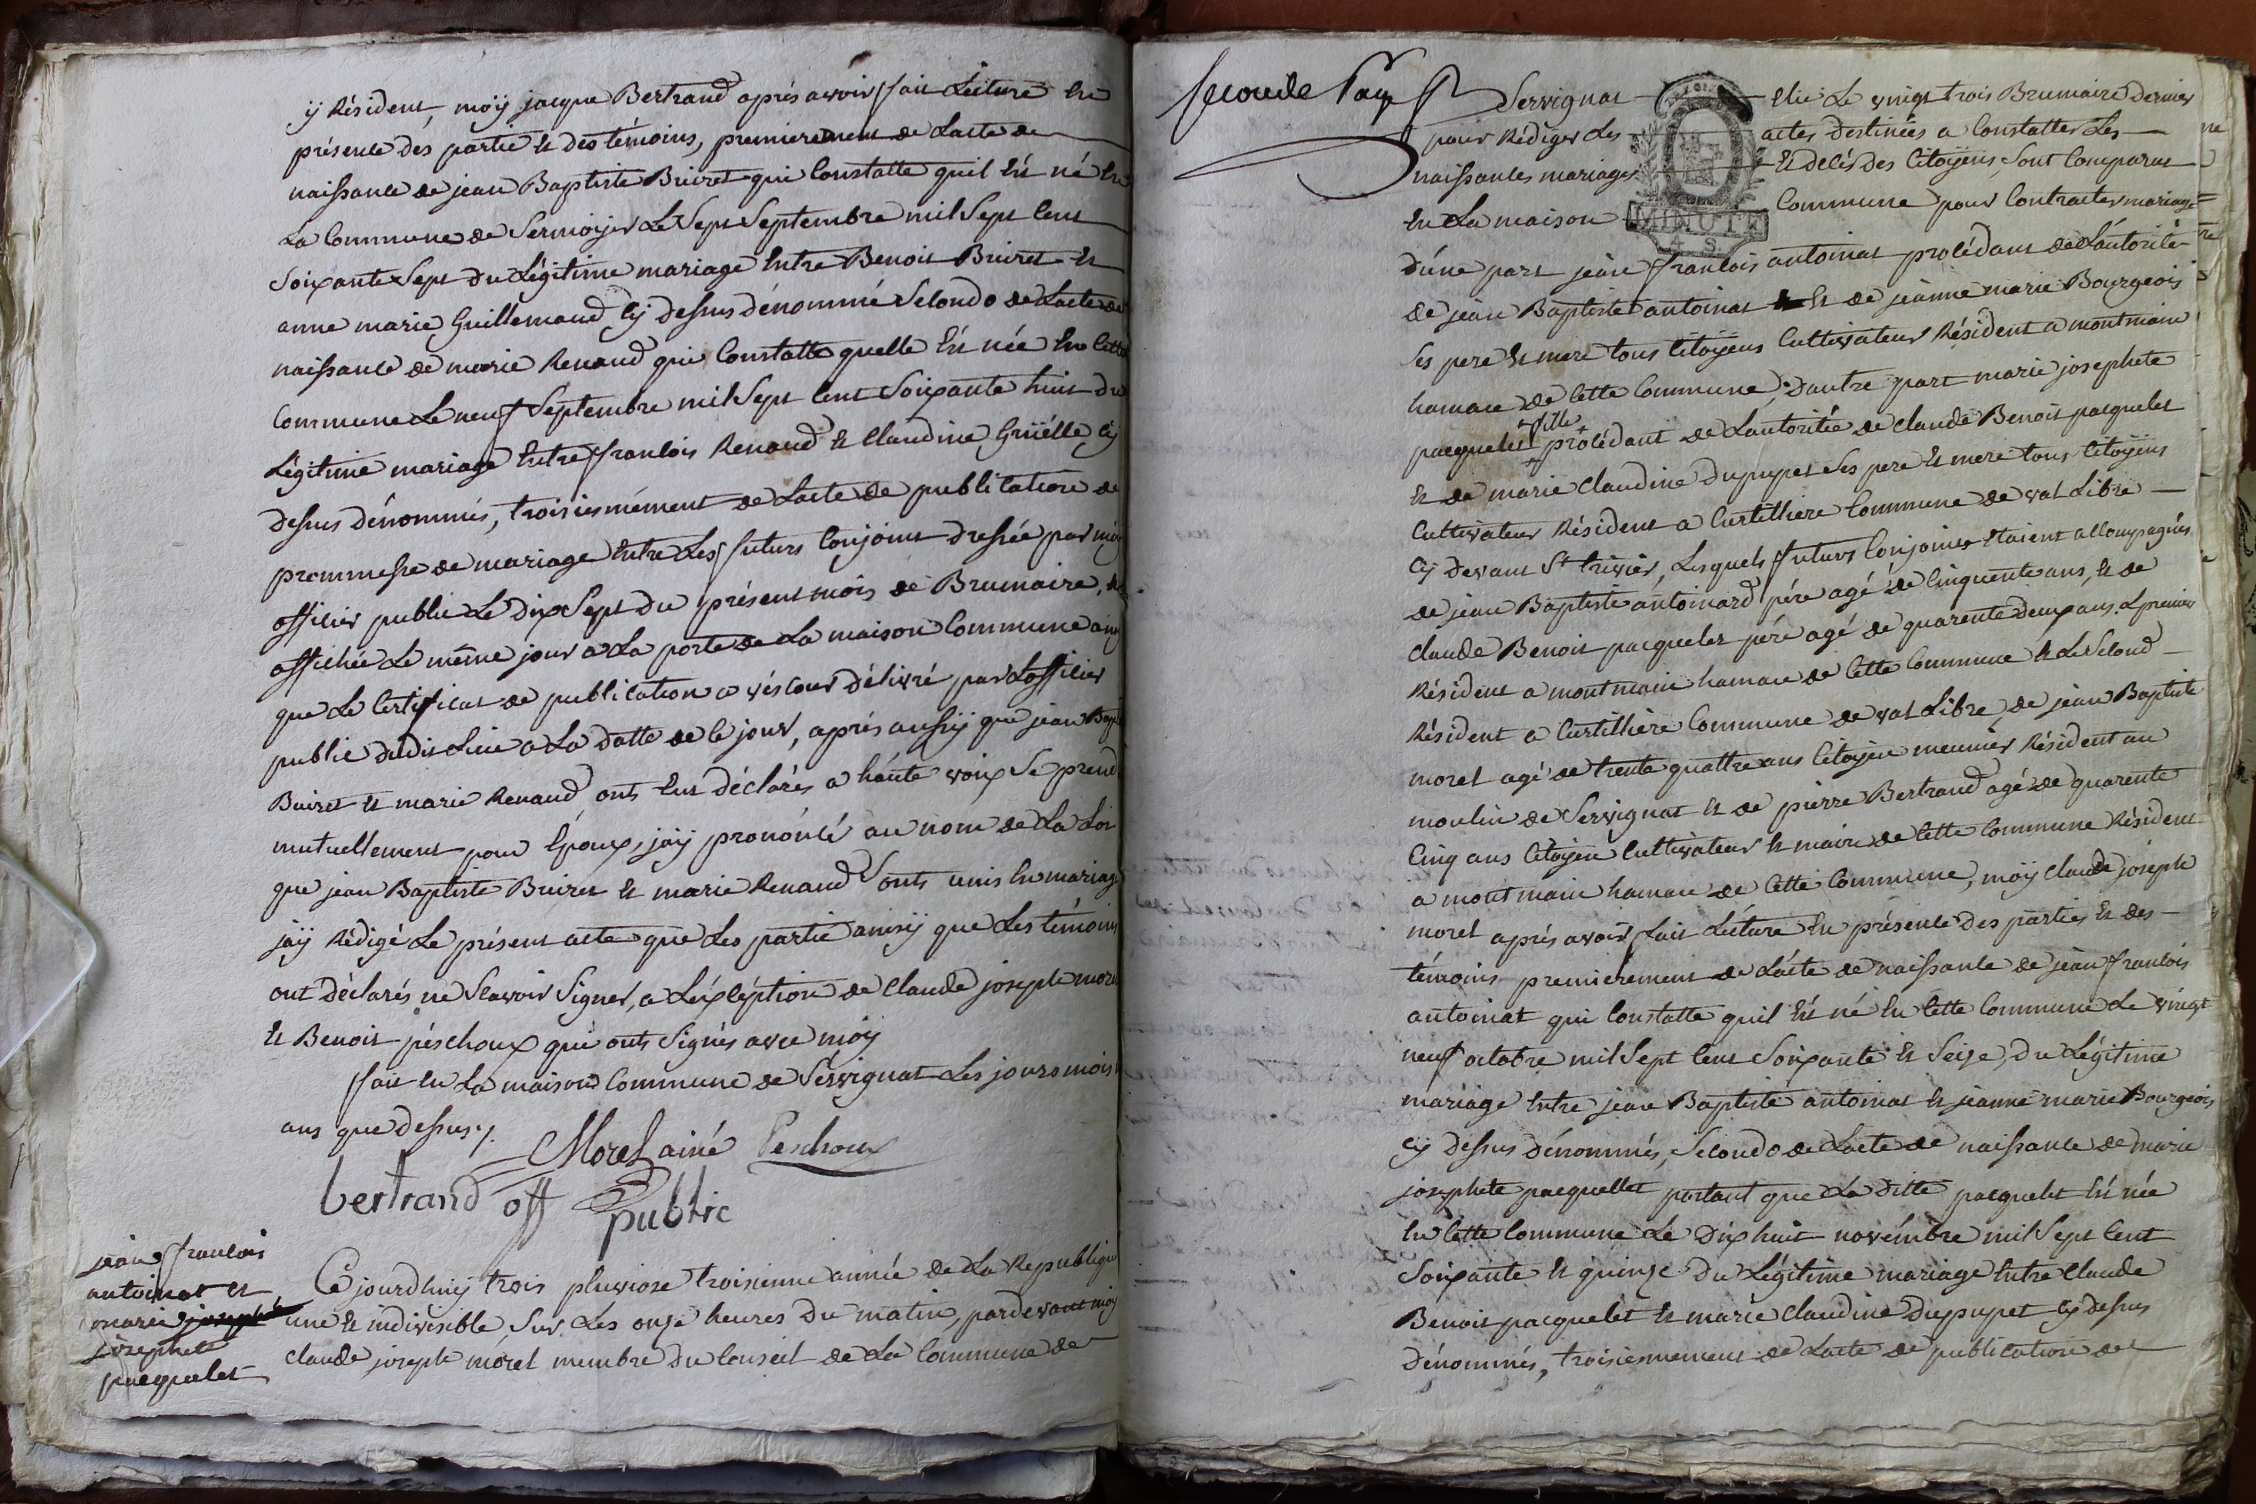 ÿ Résident, moÿ jacque Bertrand aprés avoir fait Lecture En
présence dés partie & des témoins, premierement de Lacte de
naissance de jean Baptiste Buiret qui Constatte quil Est né En
La Commune de Sermoyer Le Sept Septembre mil Sept Cent
Soixante Sept du Légitime mariage Entre Benoit Buiret Et
anne marie Guillemaud Cÿ dessus dénommé Secondo de Lacte de
naissance de marie Renaud qui Constatte quelle Est née En Cette
Commune Le neuf Septembre mil Sept Cent Soixante huit du
Légitime mariage Entre francois Renaud Et Claudine Gruëlle Cÿ
dessus dénommés, troisiesmément de Lacte de publication de
prommesse de mariage Entre Les futurs Conjoint dressée par moÿ
officier public Le dix Sept du présent mois de Brumaire, &
affichée Le même jour a La porte de La maison Commune ainsÿ
que Le Certificat de publication a véscour délivré par Lofficier
public dudit Lieu a La datte de Ce jour, aprés aussÿ que jean Bapt
Buiret Et marie Renaud ont Eut déclarés a haute voix Se prend
mutuéllement pour Époux, jaÿ prononcé au nom de La Loi
que jean Baptiste Buiret Et marie Renaud Sont unis En mariage
jaÿ Rédigé Le présent acte que Les partie ainsÿ que Les témoins
ont déclarés ne Scavoir Signer, a Léxception de Claude joseph morel
Et Benoit péschoux qui ont Signés avec moÿ
fait En La maison Commune de Sérvignat Les jours mois
ans que dessus ./.
Morel ainé Peschoux
bertrand off public
jean francois
antoinat et
marie joseph
josephete
pacquelet
Ce jourdhuÿ trois pluviose troisieme année de La Republique
une & indivisible, Sur Les onze heures Du matin, pardevant moÿ
Claude joseph morel membre Du Conseil de La Commune de
Seconde Page
Servignat Elu Le vingt trois Brumaire dernier
pour Rédiger Les actes destinées a Constatter Les
naissances mariages Et decés des Citoÿens, Sont Comparus
En La maison Commune pour Contracter mariage
MINUTE
4 S.
dúne part jean francois antoinat procédant de Lautorité
de jean Baptiste antoinat Et de jeanne marie Bourgeois
Ses pere Et mere tous Citoÿens Cultivateur Résident a montmain
hamau de Cette Commune, Dautre part marie josephete
pacquelet fille procédant de Lautoritée de claude Benoit pacquelet
Et de marie Claudine dupupet Ses pere Et mere tous Citoÿens
Cultivateur Résident a Curtilliere Commune de val Libre
Cÿ devant St trivier, Lesquels futurs Conjoints Etaient accompagnés
de jean Baptiste antoinard pére agé de Cinquente ans, Et de
claude Benoit pacquelet pére agé de quarente deux ans. L premier
Résident a montmain hamau de Cette Commune Et Le Second
Résident a Curtilliére Commune de val Libre, de jean Baptiste
morel agé de trente quattre ans Citoÿen meunier Résident au
moulin de Servignat Et de pierre Bertrand agé de quarente
Cinq ans Citoÿen Cultivateur Et maire de Cette Commune Résident
a montmain hamau de Cette Commune, moÿ claude joseph
morel aprés avoir fait Lecture En présence des parties Et des
témoins premierement de Lácte de naissance de jean francois
antoinat qui Constatte quil Est né En Cette Commune Le vingt
neuf octobre mil Sept Cent Soixante Et Seize, du Légitime
mariage Entre jean Baptiste antoinat Et jeanne marie Bourgeois
Cÿ dessus dénommés, Secondo de Lacte de naissance de marie
josephete pacquellet portant que La ditte pacquelet Est née
En Cette Commune Le dix huit novémbre mil Sept Cent
Soixante Et quinze du Légitime mariage Entre Claude
Benoit pacquelet Et marie Claudine Duppupet Cÿ dessus
dénommés, troisiesmement de Lacte de publication de